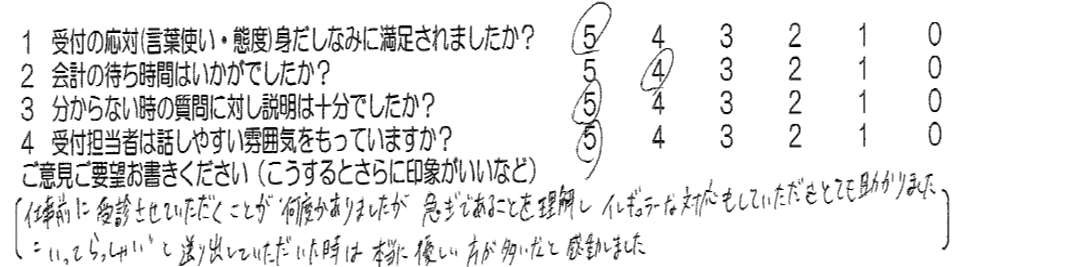 1 受付の応対(言葉使い・態度)身だしなみに満足されましたか? 5 4 3 2 1 0
2 会計の待ち時間はいかがでしたか? 5 4 3 2 1 0
3 分からない時の質問に対し説明は十分でしたか? 5 4 3 2 1 0
4 受付担当者は話しやすい雰囲気をもっていますか? 5 4 3 2 1 0
ご意見ご要望お書きください(こうするとさらに印象がいいなど)
仕事前に受診させていただくことが何度かありましたが 急ぎであることを理解し イレギュラーな対応もしていただきとても助かりました
"いってらっしゃい"と送り出していただいた時は本当に優しい方が多いなと感動しました